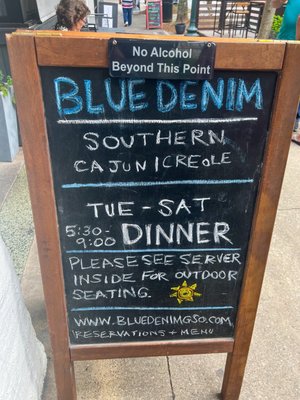 No Alcohol
Beyond This Point
BLUE DENIM
SOUTHERN
CAJUN|CREOLE
TUE - SAT
5:30-
9:00 DINNER
PLEASE SEE SERVER
INSIDE FOR OUTDOOR
SEATING.
WWW.BLUEDENIMGSO.COM
RESERVATIONS + MENU